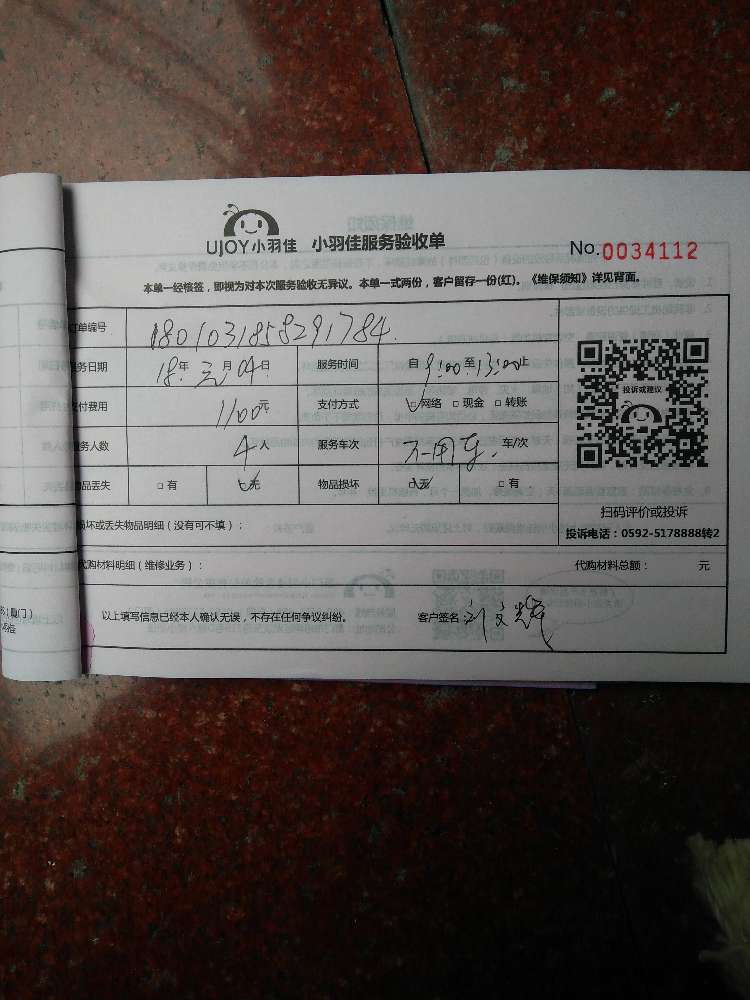 UJOY小羽佳 小羽佳服务验收单 No.0034112
本单一经核签，即视为对本次服务验收无异议。本单一式两份，客户留存一份(红)。《维保须知》详见背面。
单编号 1801031858291784.
务日期 18年 元月04日 服务时间 自9:00至13:00止
付费用 1100元 支付方式 网络 □现金 □转账
务人数 4人 服务车次 不用车. 车/次
品丢失 □有 无 物品损坏 无 □有
投诉或建议
扫码评价或投诉
投诉电话：0592-5178888转2
坏或丢失物品明细（没有可不填）：
代购材料明细（维修业务）： 代购材料总额： 元
以上填写信息已经本人确认无误，不存在任何争议纠纷。 客户签名：刘文